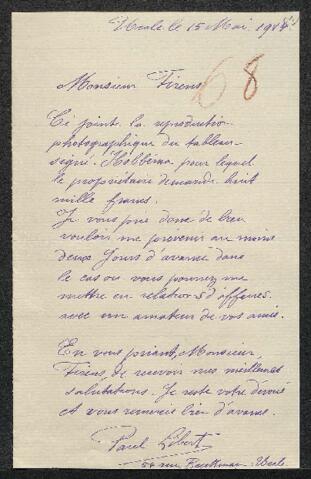 Uccle le 15 Mai
68
Monsieur Firens
Ci joint la reproduction
photographique du tableau
signé. Hobbema pour lequel
le propriétaire demande huit
mille francs.
Je vous prie donc de bien
vouloir me prévenir au moins
deux Jours d'avance dans
le cas ou vous pourriez me
mettre en relations d'affaires
avec un amateur de vos amis.
En vous priant, Monsieur,
Firens, de recevoir mes meilleures
salutations. Je reste votre dévoué
et vous remercie bien d'avance.
Paul Libert
rue Uccle